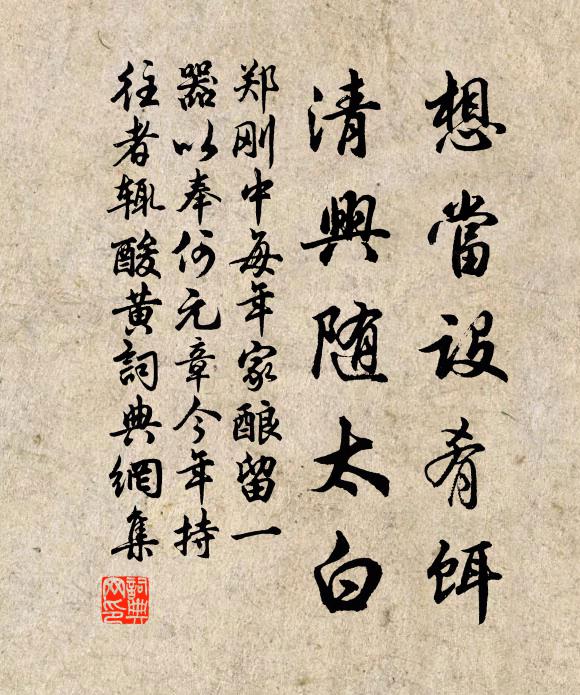 想當设肴饵
清興随太白
郑刚中每年家酿留一
器以奉何元章今年持
往者辄酸黄詞典網集
詞典